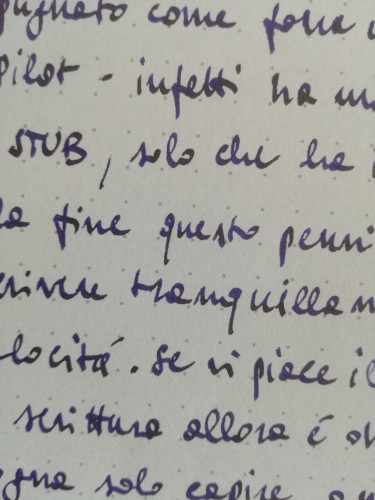 pugnato come fosse
Pilot - infatti ha
STUB, solo che ha
la fine questo penn
crivere tranquillam
locitá. Se vi piace il
scrittura allora é
egna solo capire